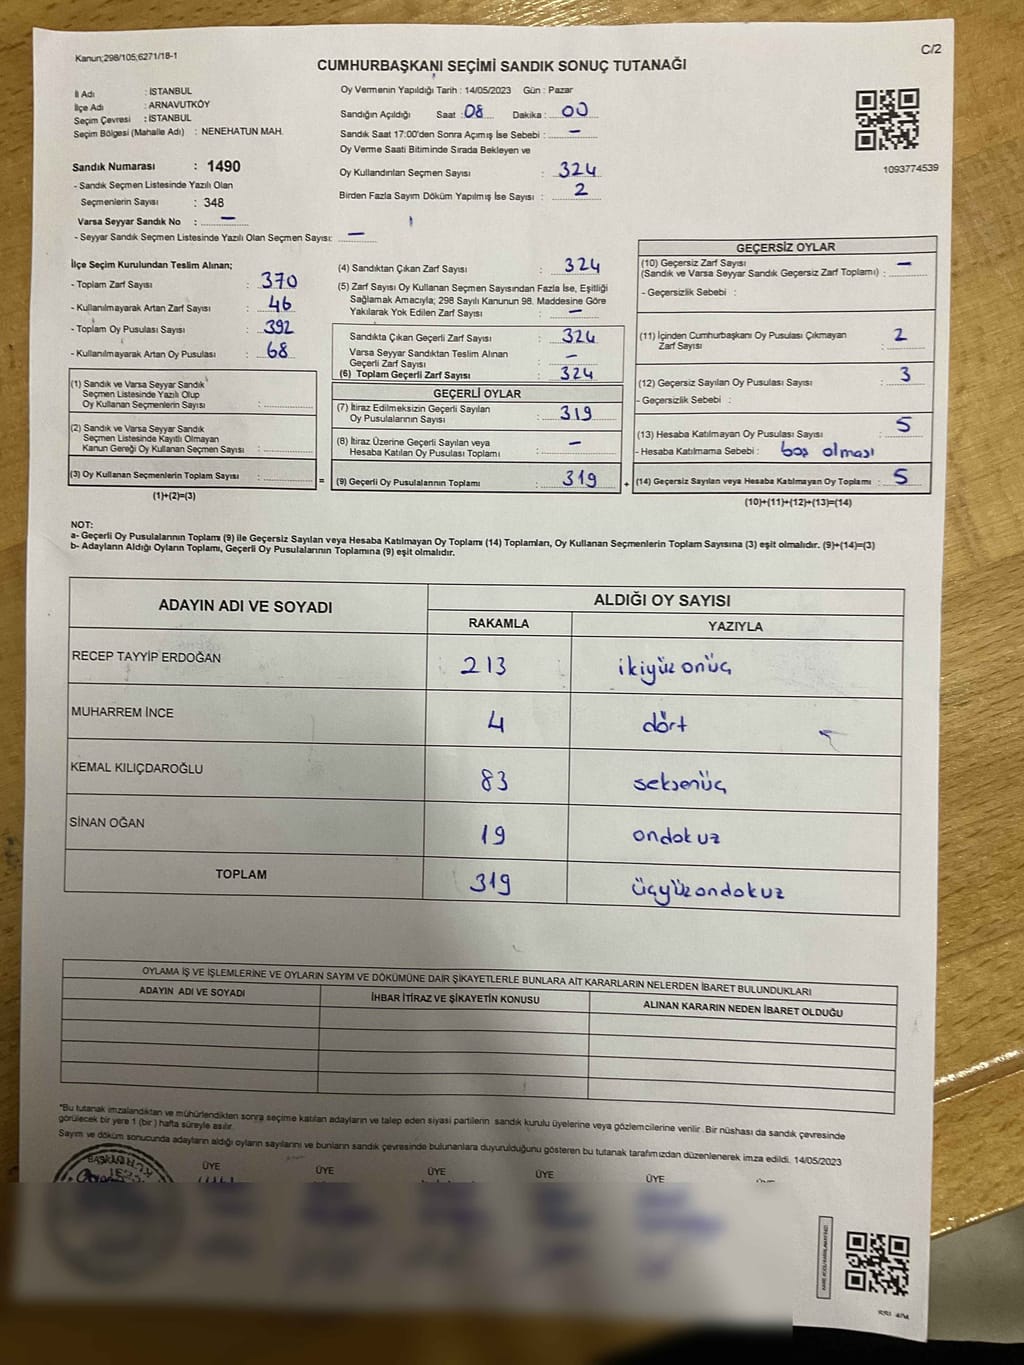 Kanun;298/105;6271/18-1
C/2
CUMHURBAŞKANI SEÇİMİ SANDIK SONUÇ TUTANAĞI
İl Adı : İSTANBUL
İlçe Adı : ARNAVUTKÖY
Seçim Çevresi : İSTANBUL
Seçim Bölgesi (Mahalle Adı) : NENEHATUN MAH.
Sandık Numarası : 1490
- Sandık Seçmen Listesinde Yazılı Olan
Seçmenlerin Sayısı : 348
Varsa Seyyar Sandık No : —
- Seyyar Sandık Seçmen Listesinde Yazılı Olan Seçmen Sayısı: —
Oy Vermenin Yapıldığı Tarih : 14/05/2023 Gün : Pazar
Sandığın Açıldığı Saat : 08 Dakika : 00
Sandık Saat 17:00'den Sonra Açımış İse Sebebi : —
Oy Verme Saati Bitiminde Sırada Bekleyen ve
Oy Kullandırılan Seçmen Sayısı : 324
Birden Fazla Sayım Döküm Yapılmış İse Sayısı : 2
1093774539
İlçe Seçim Kurulundan Teslim Alınan;
- Toplam Zarf Sayısı : 370
- Kullanılmayarak Artan Zarf Sayısı : 46
- Toplam Oy Pusulası Sayısı : 392
- Kullanılmayarak Artan Oy Pusulası : 68
(1) Sandık ve Varsa Seyyar Sandık
Seçmen Listesinde Yazılı Olup
Oy Kullanan Seçmenlerin Sayısı :
(2) Sandık ve Varsa Seyyar Sandık
Seçmen Listesinde Kayıtlı Olmayan
Kanun Gereği Oy Kullanan Seçmen Sayısı :
(3) Oy Kullanan Seçmenlerin Toplam Sayısı : =
(1)+(2)=(3)
(4) Sandıktan Çıkan Zarf Sayısı : 324
(5) Zarf Sayısı Oy Kullanan Seçmen Sayısından Fazla İse, Eşitliği
Sağlamak Amacıyla; 298 Sayılı Kanunun 98. Maddesine Göre
Yakılarak Yok Edilen Zarf Sayısı : —
Sandıkta Çıkan Geçerli Zarf Sayısı : 324
Varsa Seyyar Sandıktan Teslim Alınan
Geçerli Zarf Sayısı : —
(6) Toplam Geçerli Zarf Sayısı : 324
GEÇERLİ OYLAR
(7) İtiraz Edilmeksizin Geçerli Sayılan
Oy Pusulalarının Sayısı : 319
(8) İtiraz Üzerine Geçerli Sayılan veya
Hesaba Katılan Oy Pusulası Toplamı : —
(9) Geçerli Oy Pusulalarının Toplamı : 319 +
GEÇERSİZ OYLAR
(10) Geçersiz Zarf Sayısı
(Sandık ve Varsa Seyyar Sandık Geçersiz Zarf Toplamı) : —
- Geçersizlik Sebebi :
(11) İçinden Cumhurbaşkanı Oy Pusulası Çıkmayan
Zarf Sayısı : 2
(12) Geçersiz Sayılan Oy Pusulası Sayısı : 3
- Geçersizlik Sebebi :
(13) Hesaba Katılmayan Oy Pusulası Sayısı : 5
- Hesaba Katılmama Sebebi : boş olması
(14) Geçersiz Sayılan veya Hesaba Katılmayan Oy Toplamı : 5
(10)+(11)+(12)+(13)=(14)
NOT:
a- Geçerli Oy Pusulalarının Toplamı (9) ile Geçersiz Sayılan veya Hesaba Katılmayan Oy Toplamı (14) Toplamları, Oy Kullanan Seçmenlerin Toplam Sayısına (3) eşit olmalıdır. (9)+(14)=(3)
b- Adayların Aldığı Oyların Toplamı, Geçerli Oy Pusulalarının Toplamına (9) eşit olmalıdır.
ADAYIN ADI VE SOYADI
ALDIĞI OY SAYISI
RAKAMLA YAZIYLA
RECEP TAYYİP ERDOĞAN 213 ikiyüz onüç
MUHARREM İNCE 4 dört
KEMAL KILIÇDAROĞLU 83 seksenüç
SİNAN OĞAN 19 ondokuz
TOPLAM 319 üçyüzondokuz
OYLAMA İŞ VE İŞLEMLERİNE VE OYLARIN SAYIM VE DÖKÜMÜNE DAİR ŞİKAYETLERLE BUNLARA AİT KARARLARIN NELERDEN İBARET BULUNDUKLARI
ADAYIN ADI VE SOYADI İHBAR İTİRAZ VE ŞİKAYETİN KONUSU ALINAN KARARIN NEDEN İBARET OLDUĞU
"Bu tutanak imzalandıktan ve mühürlendikten sonra seçime katılan adayların ve talep eden siyasi partilerin sandık kurulu üyelerine veya gözlemcilerine verilir. Bir nüshası da sandık çevresinde
görülecek bir yere 1 (bir) hafta süreyle asılır.
Sayım ve döküm sonucunda adayların aldığı oyların sayılarını ve bunların sandık çevresinde bulunanlara duyurulduğunu gösteren bu tutanak tarafımızdan düzenlenerek imza edildi. 14/05/2023
ÜYE ÜYE ÜYE ÜYE ÜYE